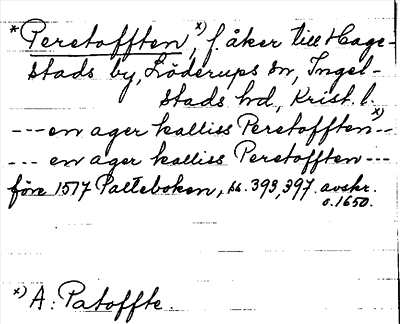 *Peretofften,ˣ⁾ f. åker till Hage-
stads by, Löderups sn, Ingel-
stads hd, Krist. l.
--- en ager kalliss Peretofftenˣ⁾--
--- en ager kalliss Peretofften ---
före 1517 Palteboken, ss. 393, 397. avskr.
o. 1650.
ˣ⁾ A: Patoffte.